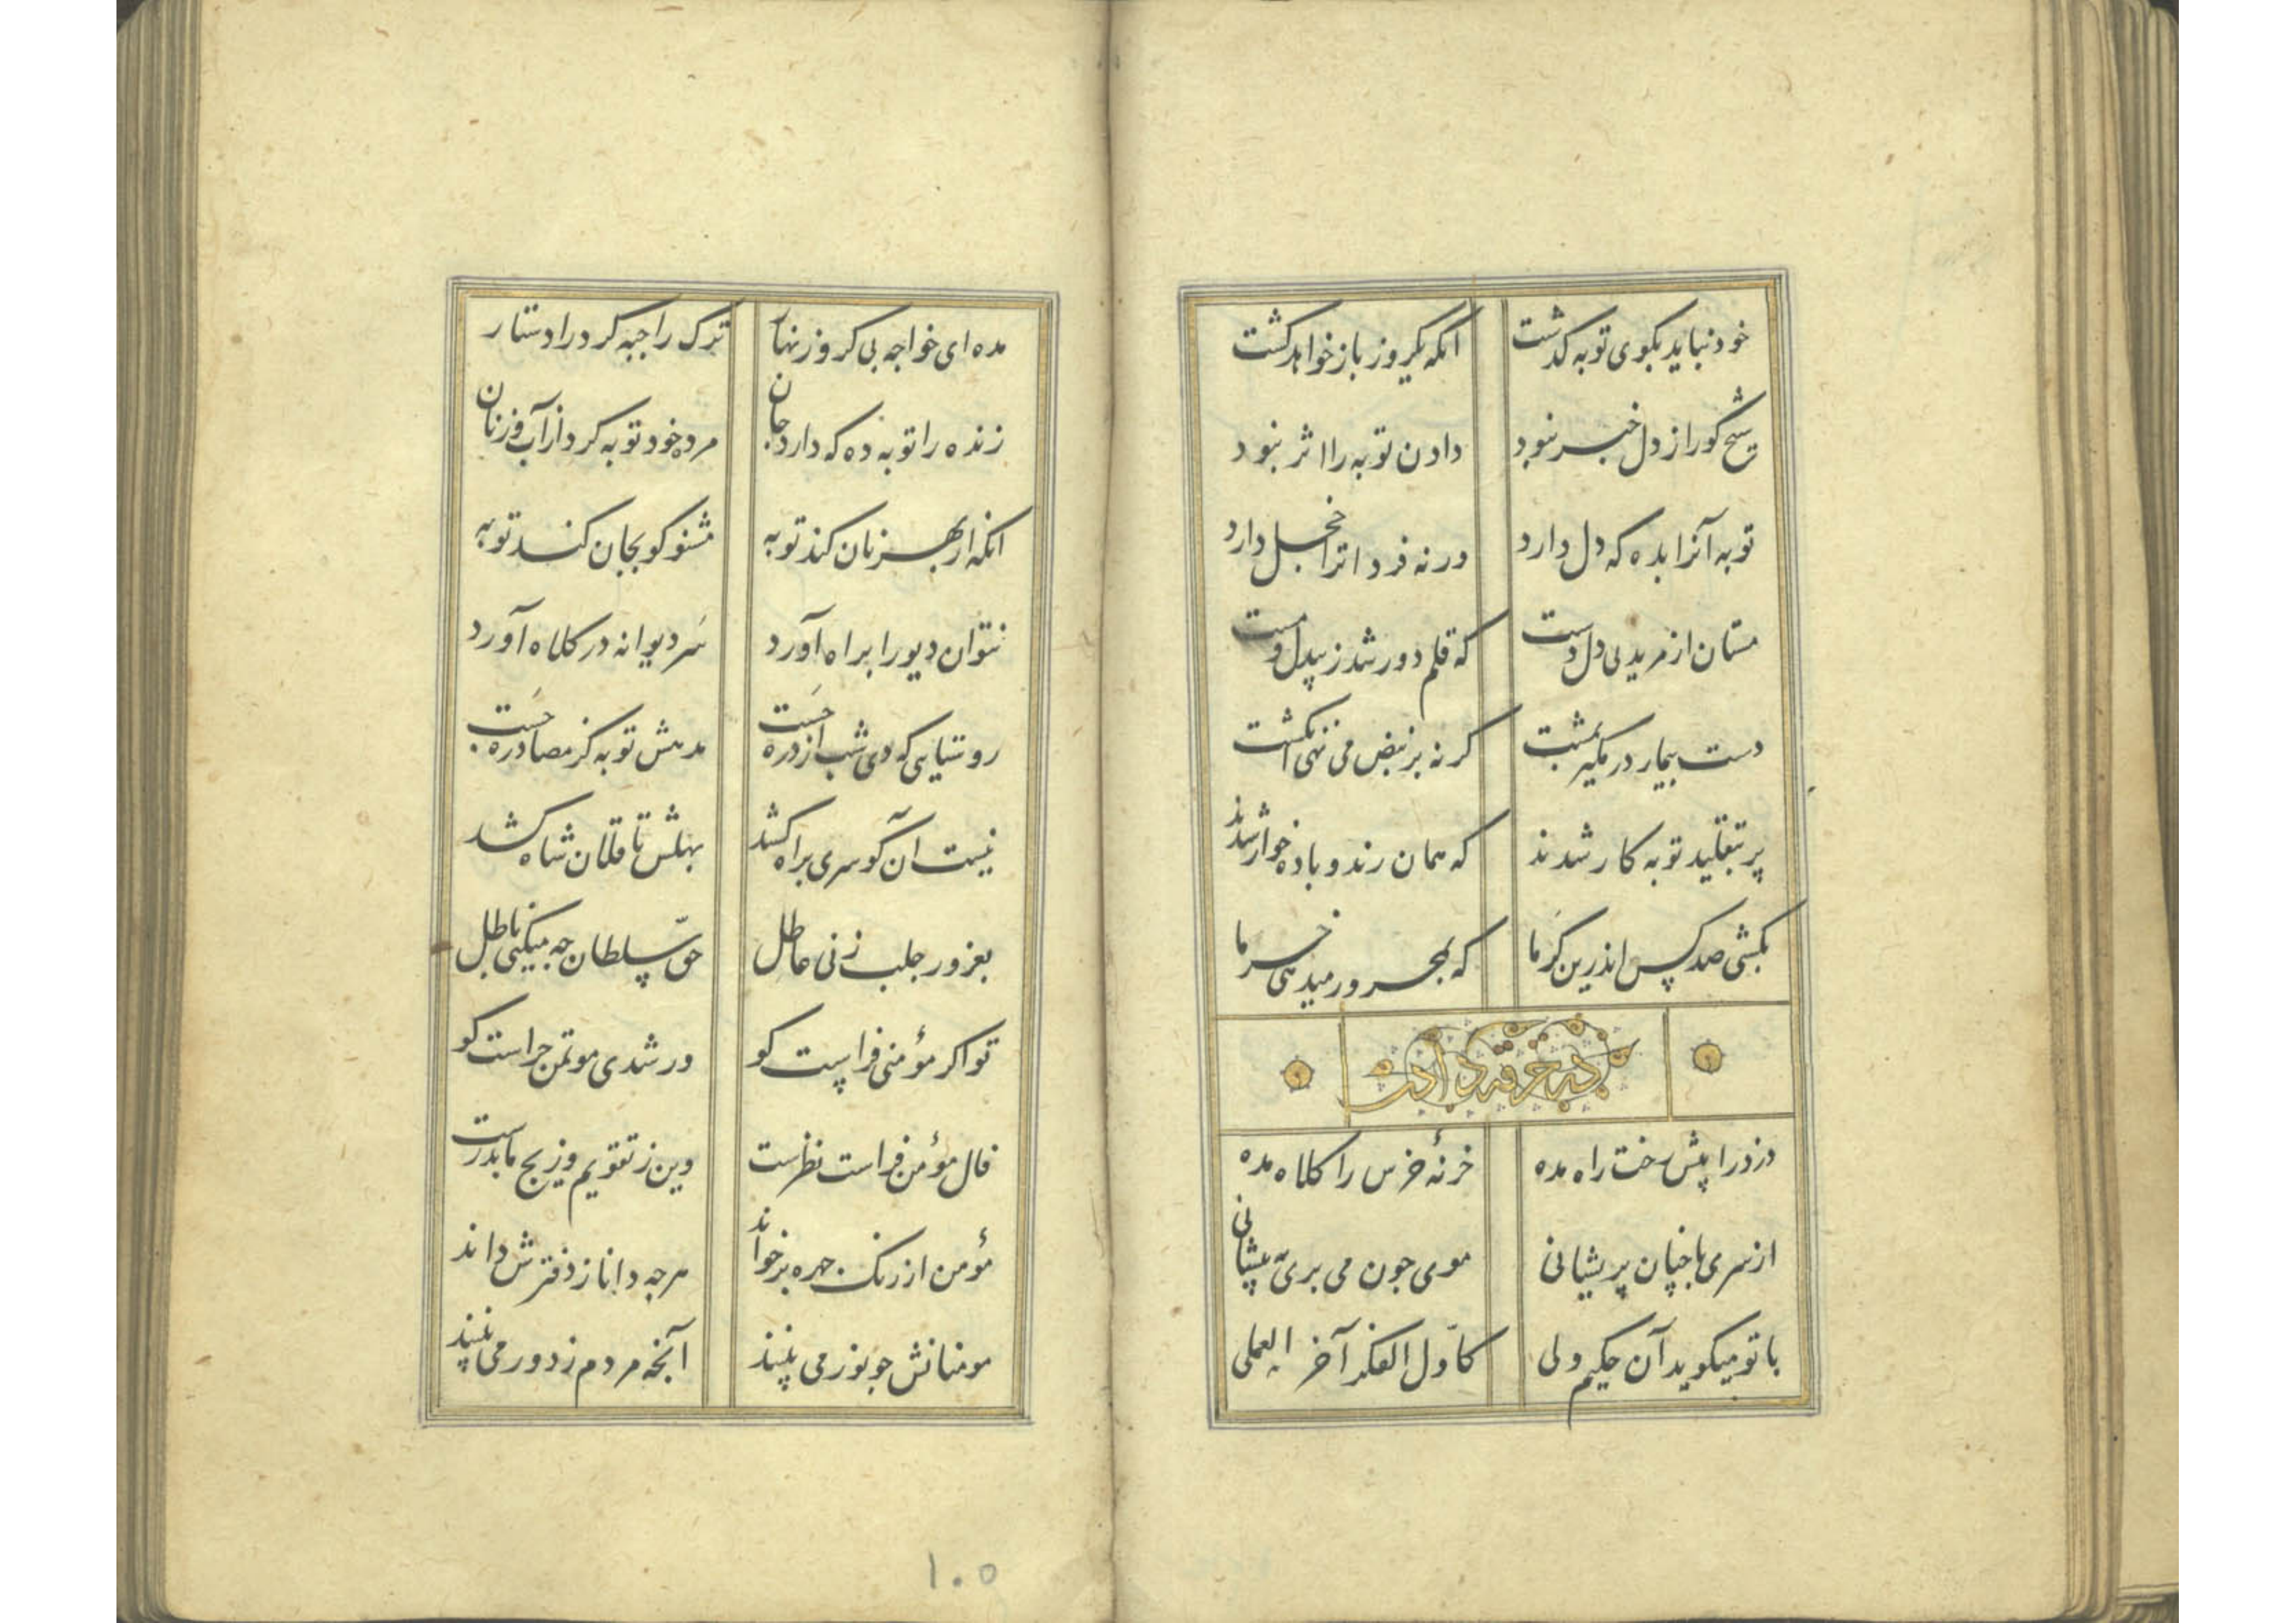 خود نباید بکوی توبه کدشت انکه یکروز باز خواهد کشت
شیخ کورا ز دل خبر نبود دادن توبه را اثر نبود
توبه آنرا بده که دل دارد ورنه فردا ترا خجل دارد
مستان از مرید بی دل دست که قلم دور شد ز بیدل و مست
دست بیمار در مکیر بمشت کرنه بر نبض می نهی انکشت
پر بتقلید توبه کار شدند که همان رند و باده خوار شدند
بکشی صد کس اندرین کرما که بمحرور میدهی خرما
در خرقه دادن
دزد را پیش رخت راه مده خرنهٔ خرس را کلاه مده
از سری با جنان پریشانی موی جون می بری بپیشانی
با تو میکوید آن حکیم ولی کاوّل الفکر آخر العملی
مده ای خواجه بی کرو زنهار ترک را جبه کرد را دستار
زنده را توبه ده که دارد جان مرده خود توبه کرد از آب و ز نان
انکه از بهر نان کند توبه مشنو کو بجان کند توبه
نتوان دیو را براه آورد سر دیوانه در کلاه آورد
روستایی که دی شب از دره جست مدهش توبه کز مصادره جست
نیست آن کو سری براه کشد بهلش تا قلان شاه کشد
بغرور جلب زنی عاطل حق سلطان جه میکنی باطل
تو اکر مؤمنی فراست کو ور شدی موتمن جراست کو
فال مؤمن فراست نظرست وین ز تقویم و زیج ما بدرست
مؤمن از رنک جهره برخواند هرجه دانا ز دفترش داند
مومنانش جو نور می بینند آنجه مردم ز دور می بینند
۱۰۵